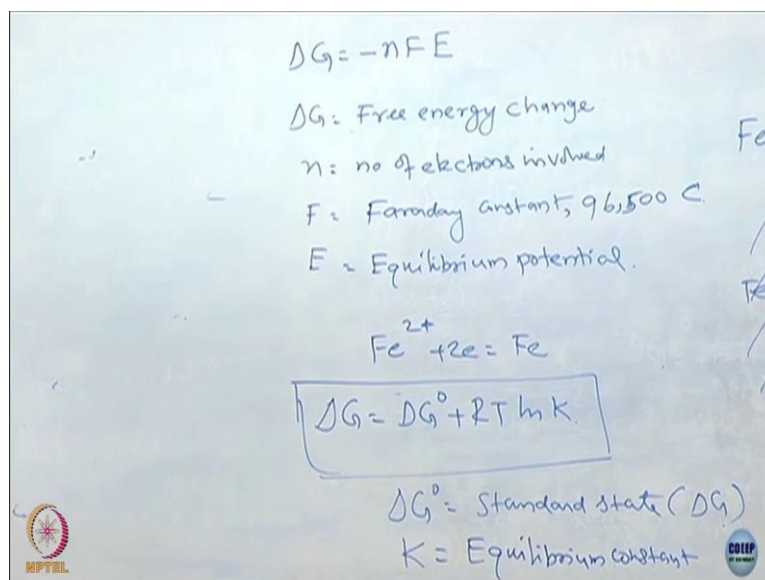 ΔG = -nFE
ΔG = Free energy change
n = no of electrons involved
F = Faraday constant, 96,500 C.
E = Equilibrium potential.
Fe²⁺ + 2e = Fe
ΔG = ΔG⁰ + RT ln K.
ΔG⁰ = Standard state (ΔG)
K = Equilibrium constant
Fe
Fe
NPTEL
CDEEP
IIT BOMBAY